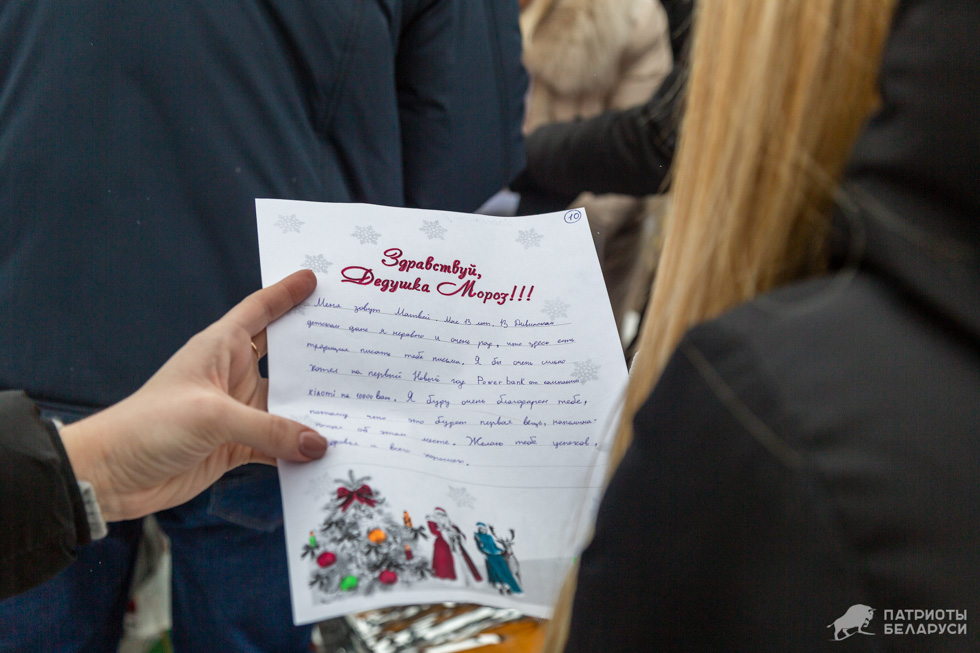 10
Здравствуй,
Дедушка Мороз!!!
Меня зовут Матвей. Мне 13 лет. В Дивинском
детском доме я недавно и очень рад, что здесь есть
традиция писать тебе письма. Я бы очень сильно
хотел на первый Новый год Power bank от компании
xiaomi на 10000 Ват. Я буду очень благодарен тебе,
потому что это будет первая вещь,
об этом месте. Желаю тебе успехов,
и всего хорошего.
ПАТРИОТЫ
БЕЛАРУСИ